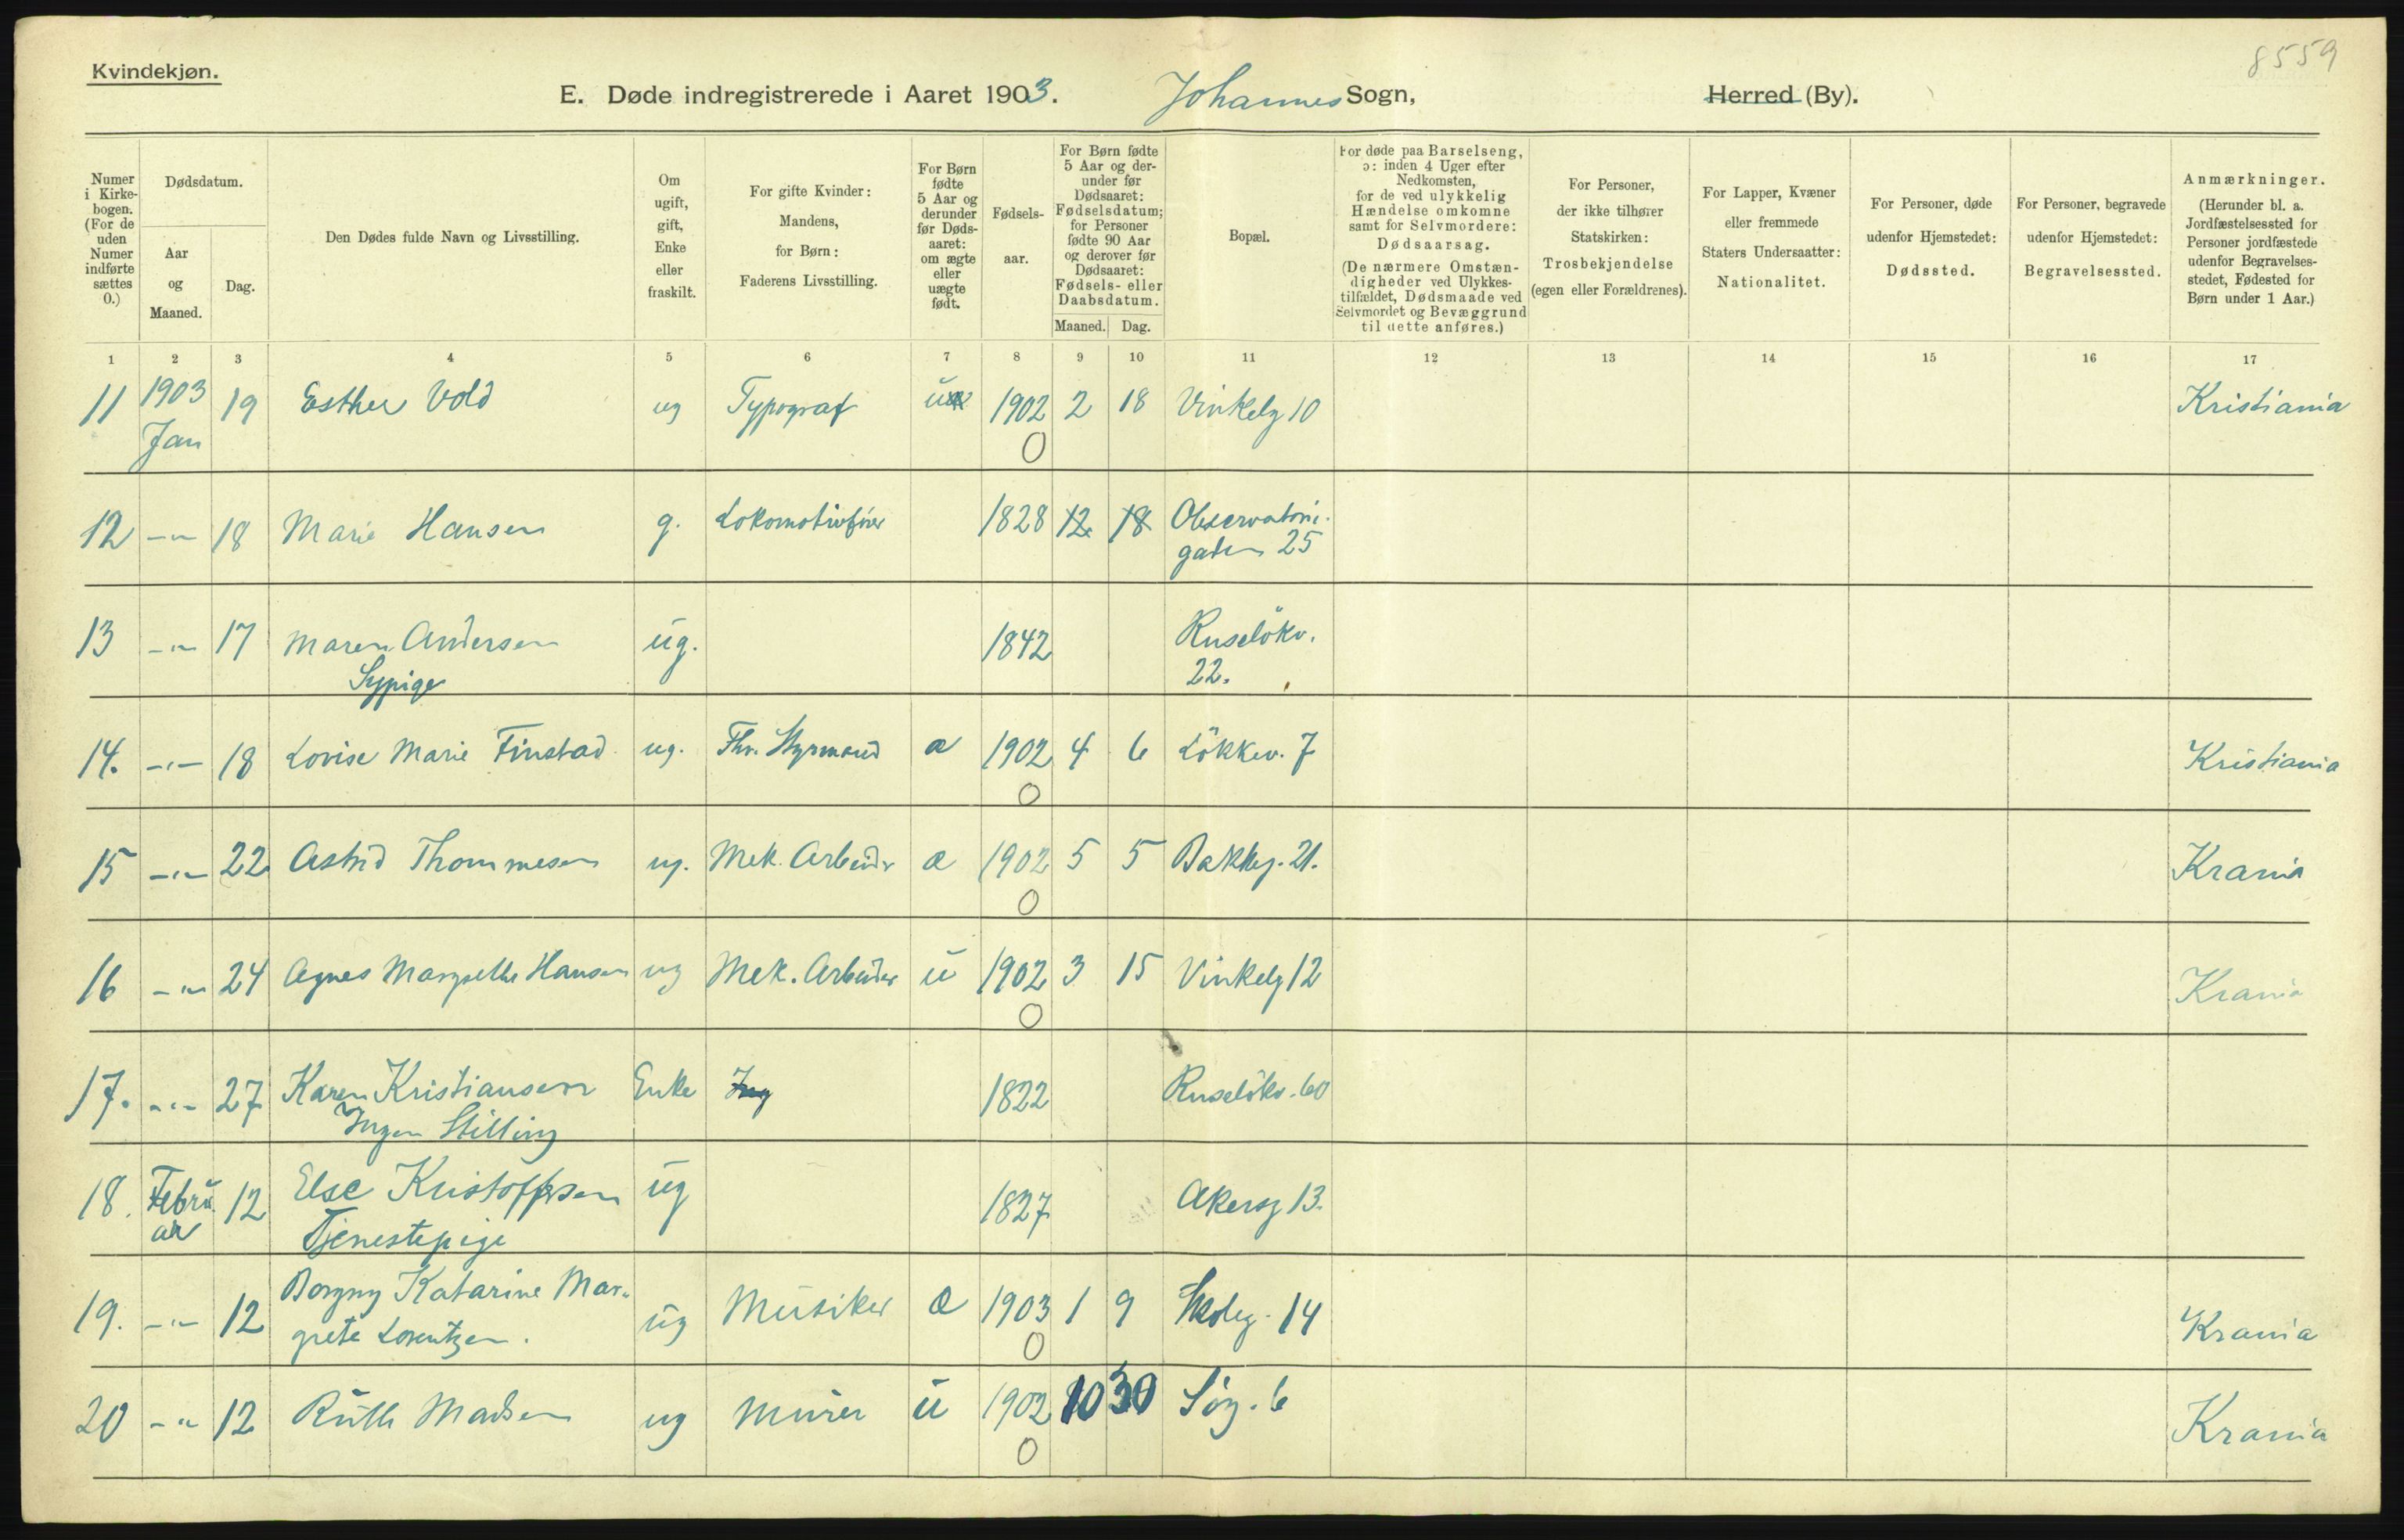 8559
Kvindekjøn.
E. Døde indregistrerede i Aaret 1903. Johannes Sogn, Herred (By).
Numer i Kirkebogen. (For de uden Numer indførte sættes 0.)
Dødsdatum.
Aar og Maaned.
Dag.
Den Dødes fulde Navn og Livsstilling.
Om ugift, gift, Enke eller fraskilt.
For gifte Kvinder: Mandens, for Børn: Faderens Livsstilling.
For Børn fødte 5 Aar og derunder før Dødsaaret: om ægte eller uægte født.
Fødselsaar.
For Børn fødte 5 Aar og derunder før Dødsaaret: Fødselsdatum; for Personer fødte 90 Aar og derover før Dødsaaret: Fødsels- eller Daabsdatum.
Maaned. Dag.
Bopæl.
For døde paa Barselseng, ɔ: inden 4 Uger efter Nedkomsten, for de ved ulykkelig Hændelse omkomne samt for Selvmordere: Dødsaarsag.
(De nærmere Omstændigheder ved Ulykkestilfældet, Dødsmaade ved Selvmordet og Bevæggrund til dette anføres.)
For Personer, der ikke tilhører Statskirken: Trosbekjendelse (egen eller Forældrenes).
For Lapper, Kvæner eller fremmede Staters Undersaatter: Nationalitet.
For Personer, døde udenfor Hjemstedet: Dødssted.
For Personer, begravede udenfor Hjemstedet: Begravelsessted.
Anmærkninger. (Herunder bl. a. Jordfæstelsessted for Personer jordfæstede udenfor Begravelsesstedet, Fødested for Børn under 1 Aar.)
1 2 3 4 5 6 7 8 9 10 11 12 13 14 15 16 17
11 1903 Jan 19 Esther Vold ug Typograf u 1902 2 18 Vinkelg 10 Kristiania
0
12 -"- 18 Marie Hansen g. Lokomotivfører 1828 12 18 Observatorie-
gaden 25
13 -"- 17 Maren Andersen ug. 1842 Ruseløkv.
Sypige 22.
14. -"- 18 Lovise Marie Finstad ug. Fhv. Styrmand æ 1902 4 6 Løkkev. 7 Kristiania
0
15 -"- 22 Astrid Thommesen ug. Mek. Arbeider æ 1902 5 5 Bakkeg. 21. Krania
0
16 -"- 24 Agnes Margrethe Hansen ug Mek. Arbeider u 1902 3 15 Vinkelg 12 Krania
0
17. -"- 27 Karen Kristiansen Enke Ing 1822 Ruseløkv. 60
Ingen Stilling
18. Februar 12 Else Kristoffersen ug 1827 Akersg 13.
Tjenestepige
19. -"- 12 Borgny Katarine Mar-
grete Lorentzen. ug Musiker æ 1903 1 9 Skoleg. 14 Krania
0
20 -"- 12 Ruth Madsen ug Murer u 1902 10 30 Søg. 6 Krania
0